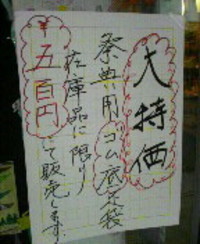 大特価
祭典用ゴム底足袋
在庫品に限り
￥五百円にて販売します。